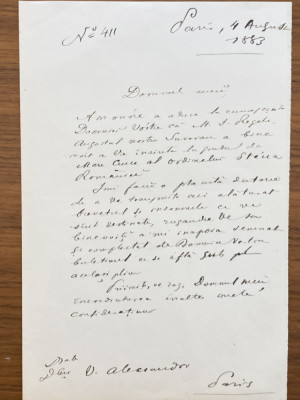 No 411
Paris, 4 August
1883
Domnul meu
Am onore a aduce la cunoscinta
Domniei Vostre că M. S. Regele
Augustul nostru Suveran a bine
voit a Ve inainta la gradul de
Mare Cruce al ordinului Steoa
României
Imi facu o placută datorie
de a Ve transmite aci alaturat
brevetul si insemnele ce ve
sunt destinate, rugandu Ve sa
bine voiti a-mi inapoia semnat
si complectat de Domnia Vostra
buletinul ce se află sub
acelasi pliu
Priimiti, ve rog, Domnul meu
incredintarea inaltei mele
consideratiuni
V. Alecsandri
Paris